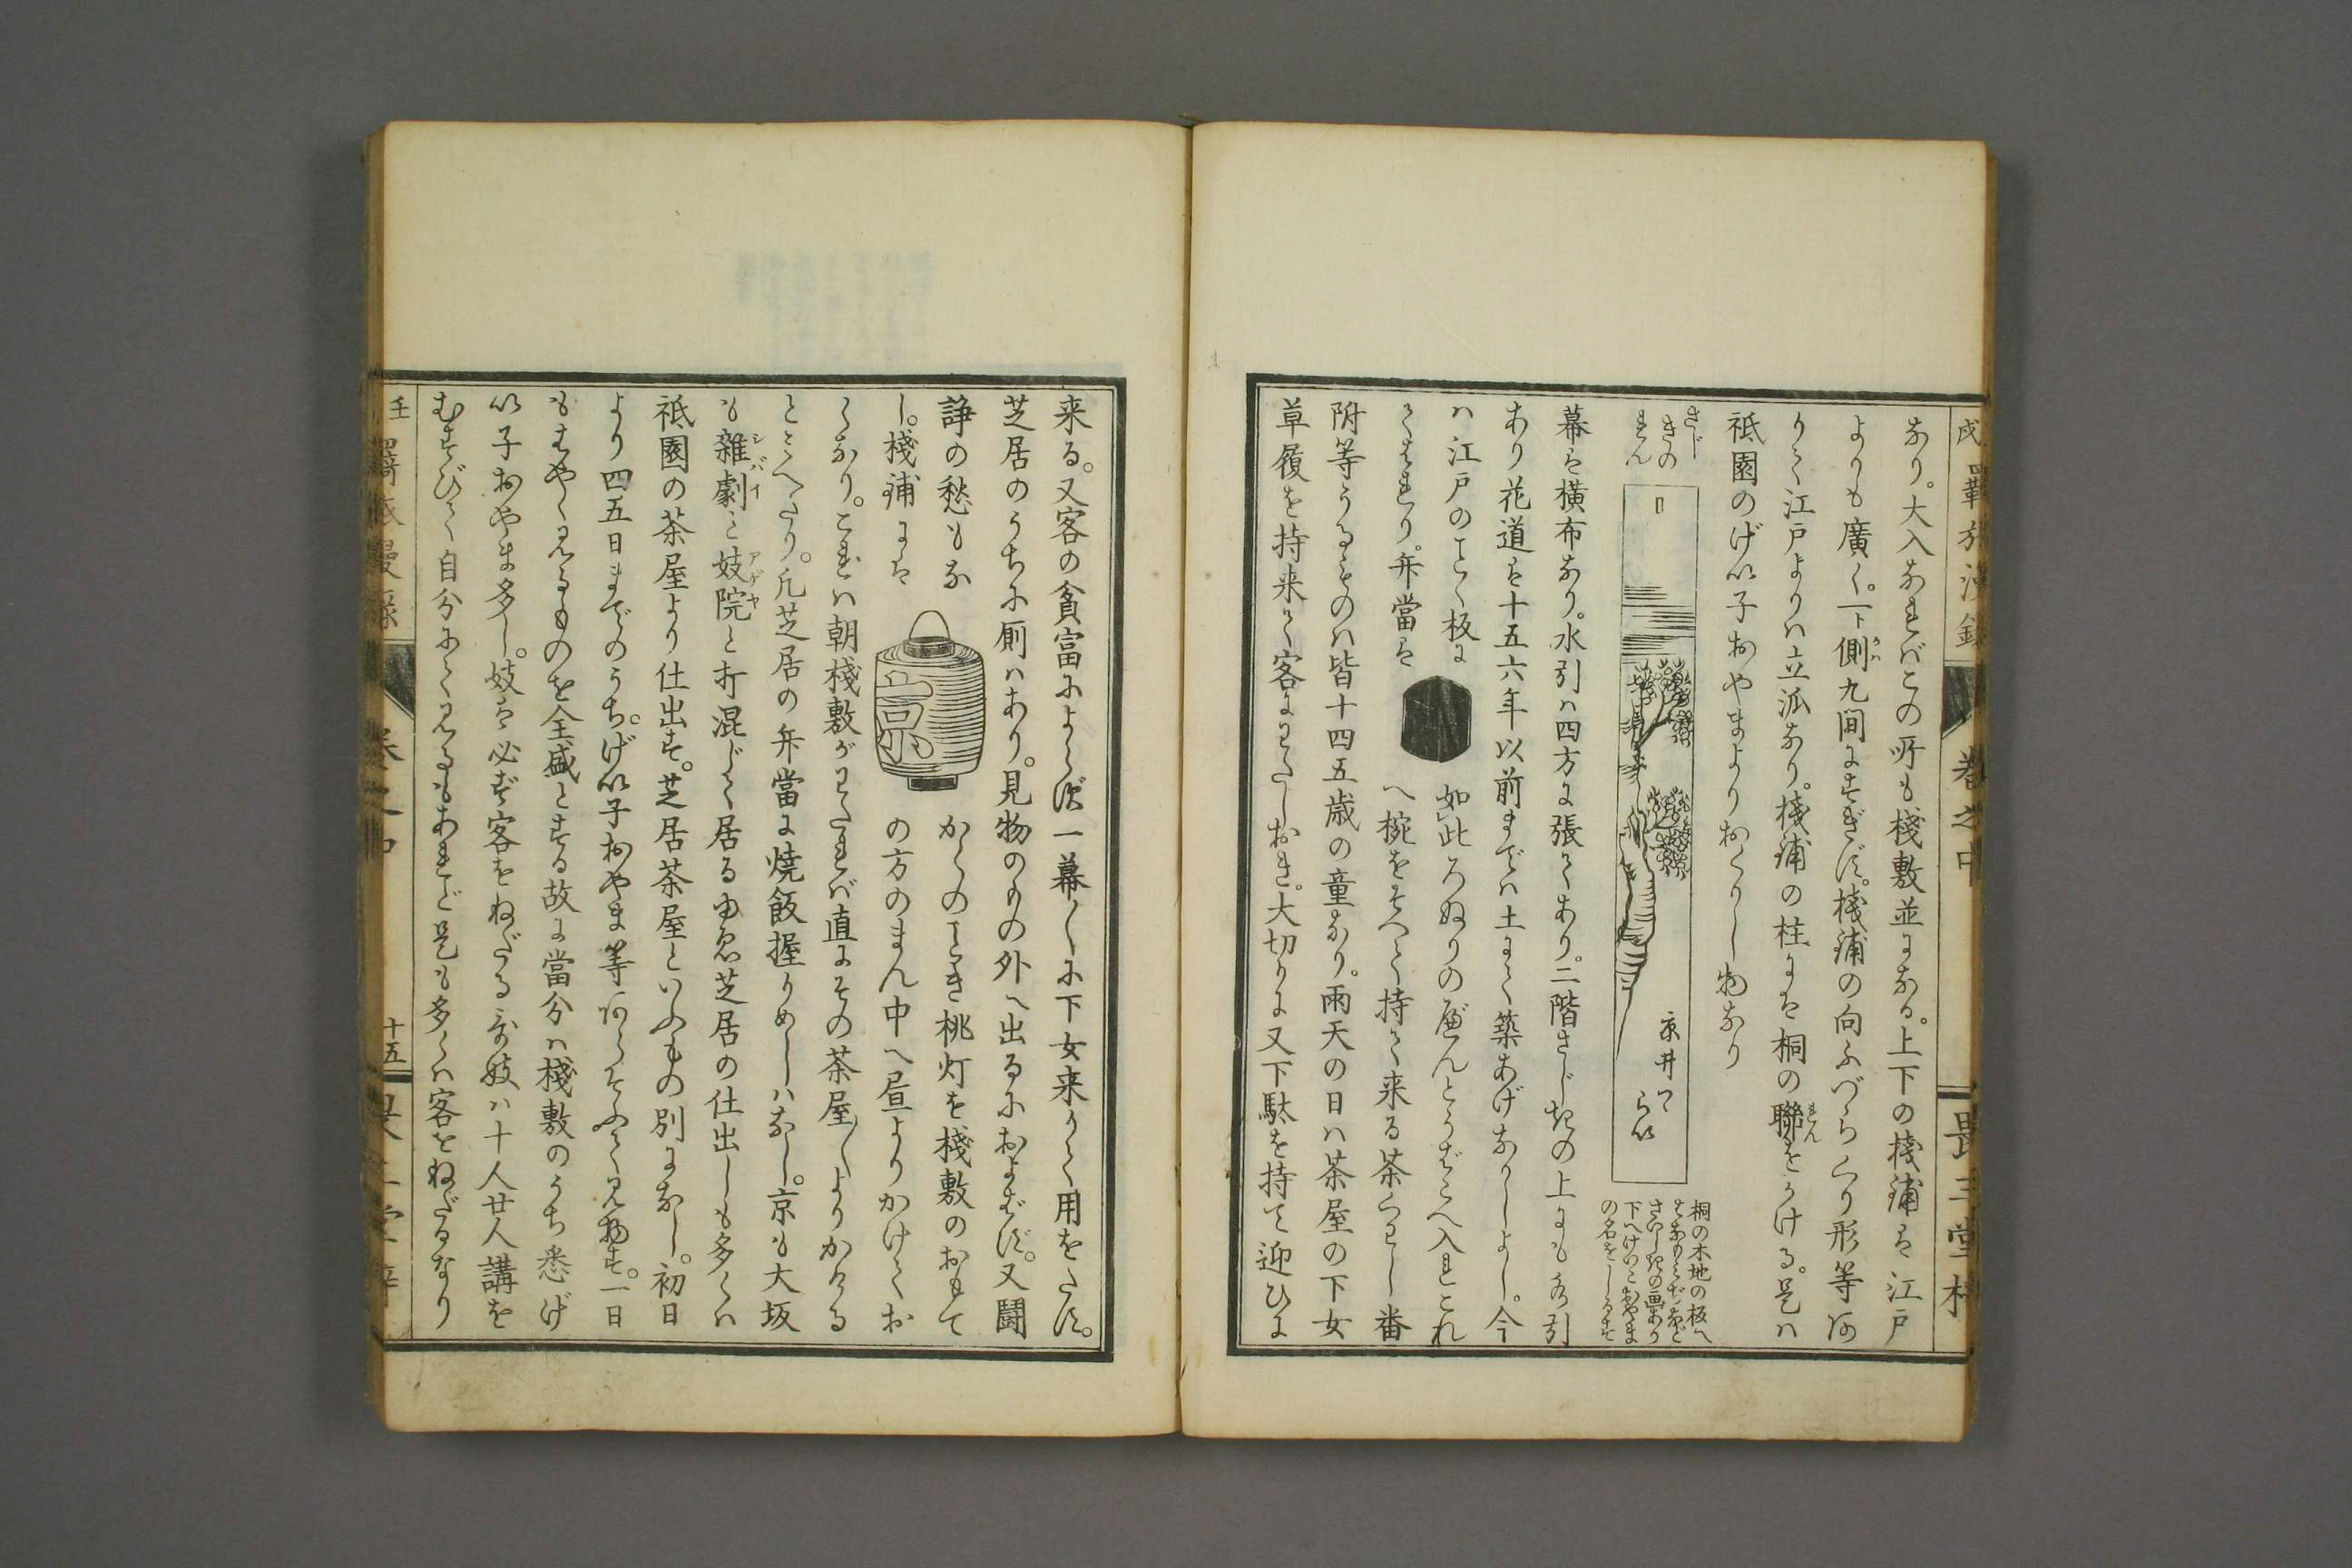 なり。大入なれバこの所も棧敷並になる。上下の棧鋪は江戸
よりも廣く。一ト側九間にすぎず。棧鋪の向ふづらくり形等何
りて江戸よりハ立派なり。棧鋪の柱には桐の聯をかける。是ハ
祗園のげい子おやまよりおくりし物なり
さじ
きの
れん
京井つ
らい
桐の木地の板へ
下へげいこおやま
の名をしるす
幕は横布なり。水引ハ四方に張てあり。二階さじきの上にも水引
あり花道は十五六年以前までハ土にて築あげなりしよし。今
ハ江戸のごとく板に
如此ろぬりのべんとうばこへ入れこれ
てはれり。弁當は
へ椀をそへて持て来る茶くわし番
附等うるものハ皆十四五歳の童なり。雨天の日ハ茶屋の下女
草履を持来て客にわたしおき。大切りに又下駄を持て迎ひに
来る。又客の貧富によらず一幕〱に下女来りて用をたす。
芝居のうちに厠ハあり。見物のもの外へ出るにおよばず。又闘
諍の愁もな
からのごとき桃灯を棧敷のおもて
し。棧鋪には
京
の方のまん中へ昼よりかけてお
くなり。これハ朝棧敷がわたれバ直にその茶屋〱よりかける
ととへたり。凡芝居の弁當に焼飯握りめしハなし。京も大坂
も雜劇と妓院と打混じて居るゆゑ芝居の仕出しも多くハ
シバイ
アゲヤ
祗園の茶屋より仕出す。芝居茶屋といふもの別になし。初日
より四五日までのうち。げい子おやま等何らそふて見物す。一日
もはやく見るものを全盛とする故に當分ハ棧敷のうち悉げ
い子おやま多し。妓は必ず客をねだる哥妓ハ十人廿人講を
むすびて自分にて見るもあれど是も多くハ客をねだるなり
卷之中
十五